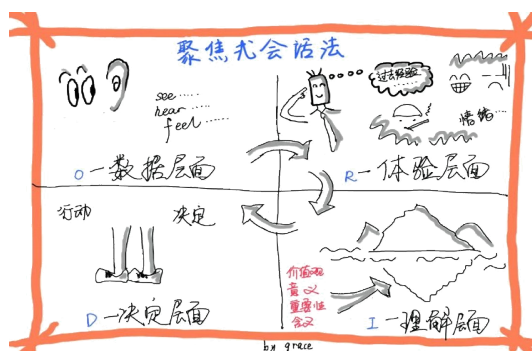 聚焦式会话法
see……
hear……
feel……
O—数据层面
过去经验
情绪…
R—体验层面
行动 决定
D—决定层面
价值观
意义
重要性
含义
I—理解层面
by grace